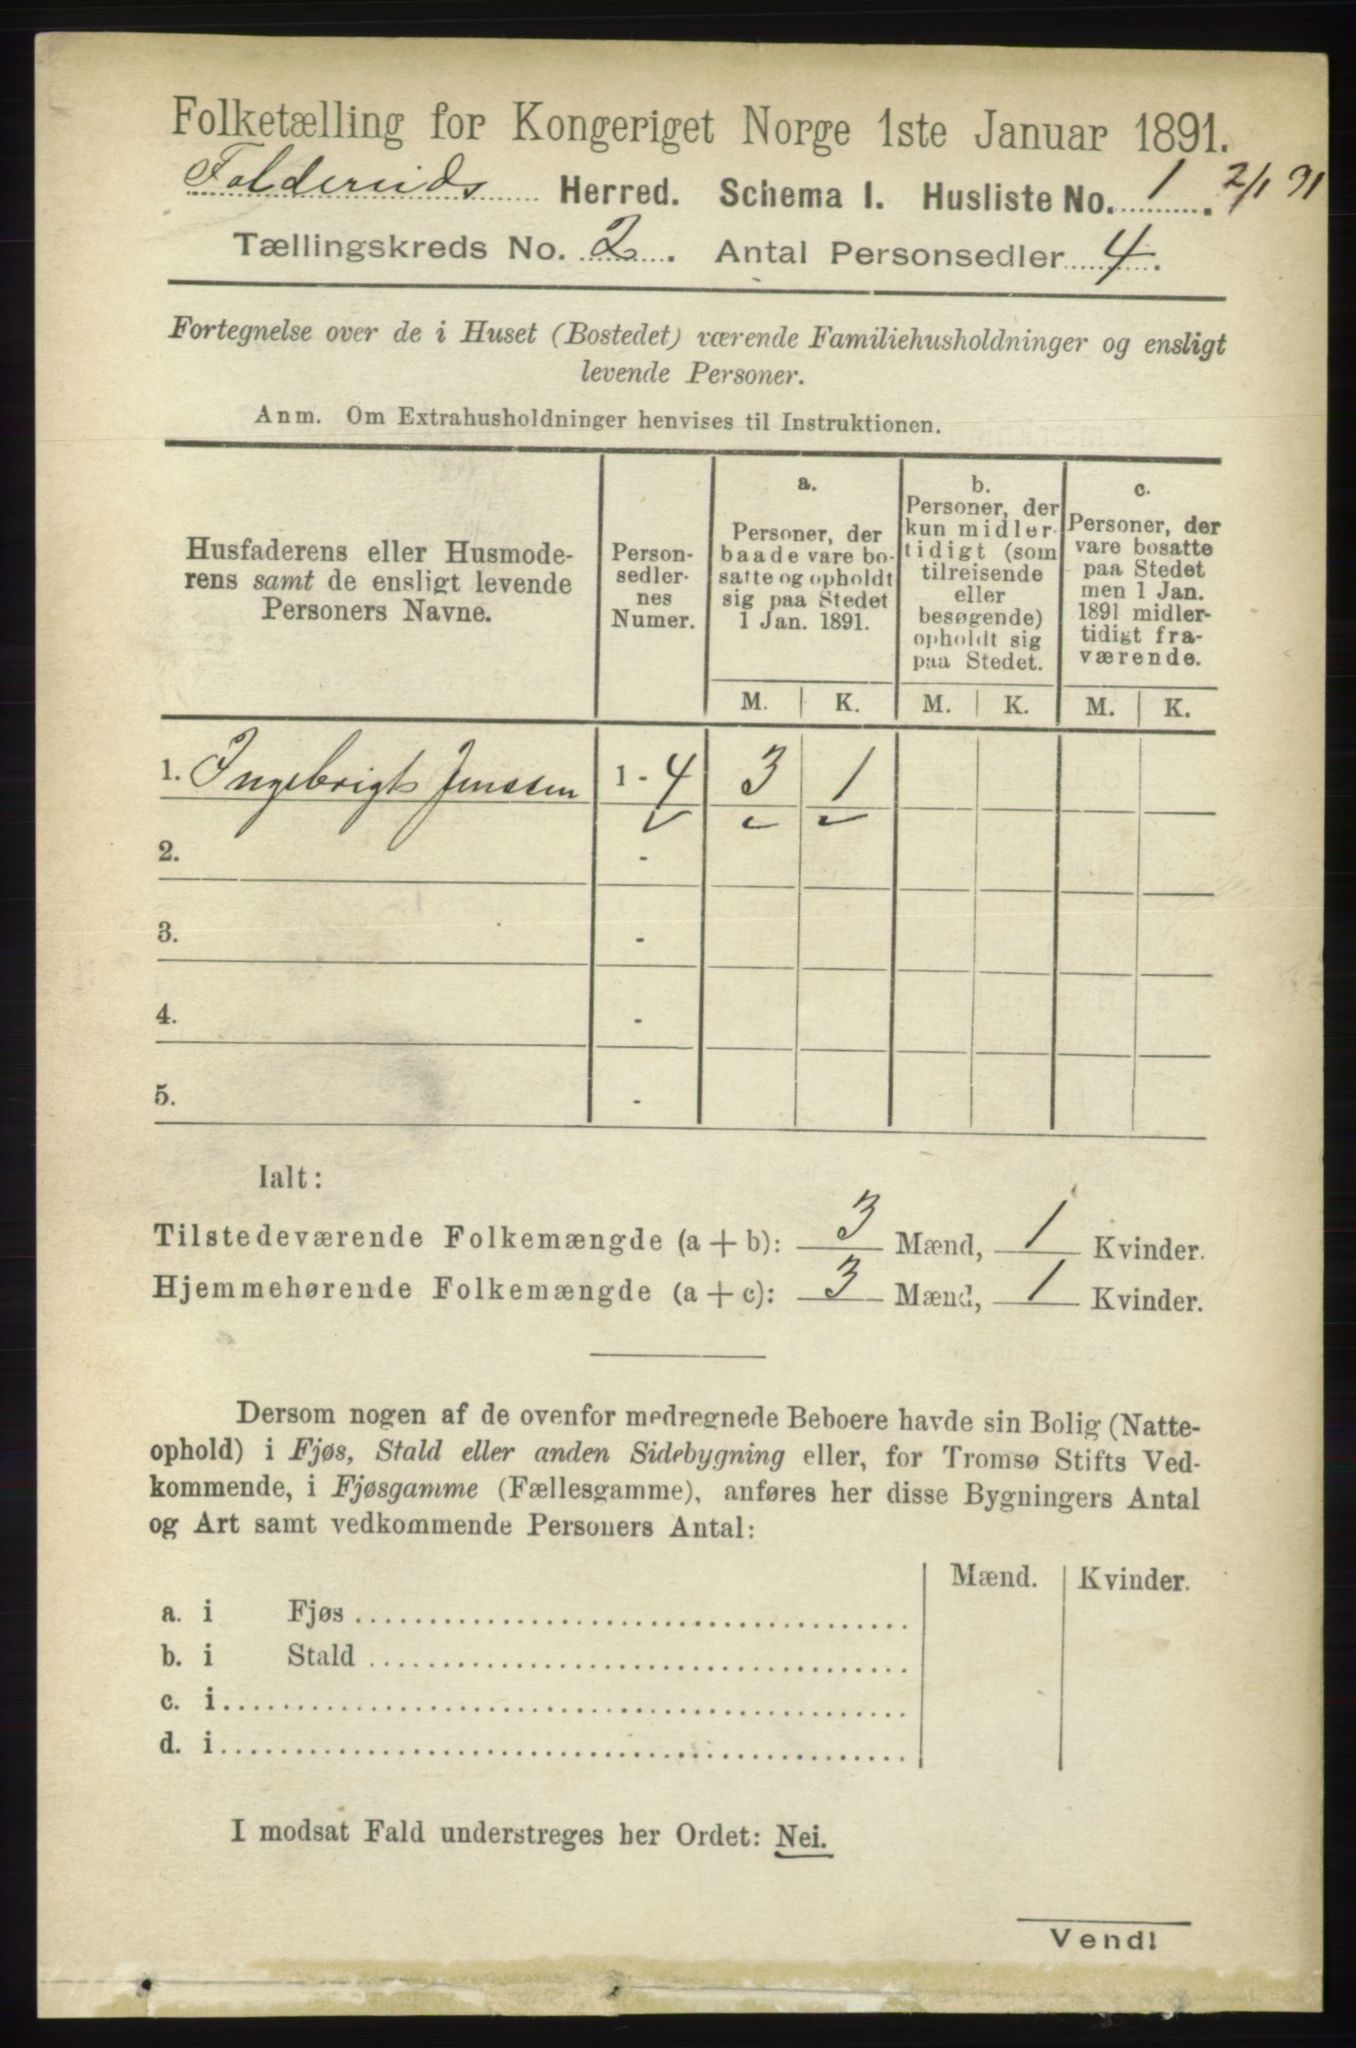 Folketælling for Kongeriget Norge 1ste Januar 1891.
Foldereids Herred. Schema I. Husliste No. 1. 2/1 91
Tællingskreds No. 2. Antal Personsedler 4.
Fortegnelse over de i Huset (Bostedet) værende Familiehusholdninger og ensligt
levende Personer.
Anm. Om Extrahusholdninger henvises til Instruktionen.
Husfaderens eller Husmode-
rens samt de ensligt levende
Personers Navne.
Person-
sedler-
nes
Numer.
a.
Personer, der
baade vare bo-
satte og opholdt
sig paa Stedet
1 Jan. 1891.
b.
Personer, der
kun midler-
tidigt (som
tilreisende
eller
besøgende)
opholdt sig
paa Stedet.
c.
Personer, der
vare bosatte
paa Stedet
men 1 Jan.
1891 midler-
tidigt fra-
værende.
M. K. M. K. M. K.
1. Ingebrigt Jenssen 1 - 4 3 1
2. -
3. -
4. -
5. -
Ialt:
Tilstedeværende Folkemængde (a + b): 3 Mænd, 1 Kvinder.
Hjemmehørende Folkemængde (a + c): 3 Mænd, 1 Kvinder.
Dersom nogen af de ovenfor medregnede Beboere havde sin Bolig (Natte-
ophold) i Fjøs, Stald eller anden Sidebygning eller, for Tromsø Stifts Ved-
kommende, i Fjøsgamme (Fællesgamme), anføres her disse Bygningers Antal
og Art samt vedkommende Personers Antal:
Mænd. Kvinder.
a. i Fjøs
b. i Stald
c. i
d. i
I modsat Fald understreges her Ordet: Nei.
Vend!